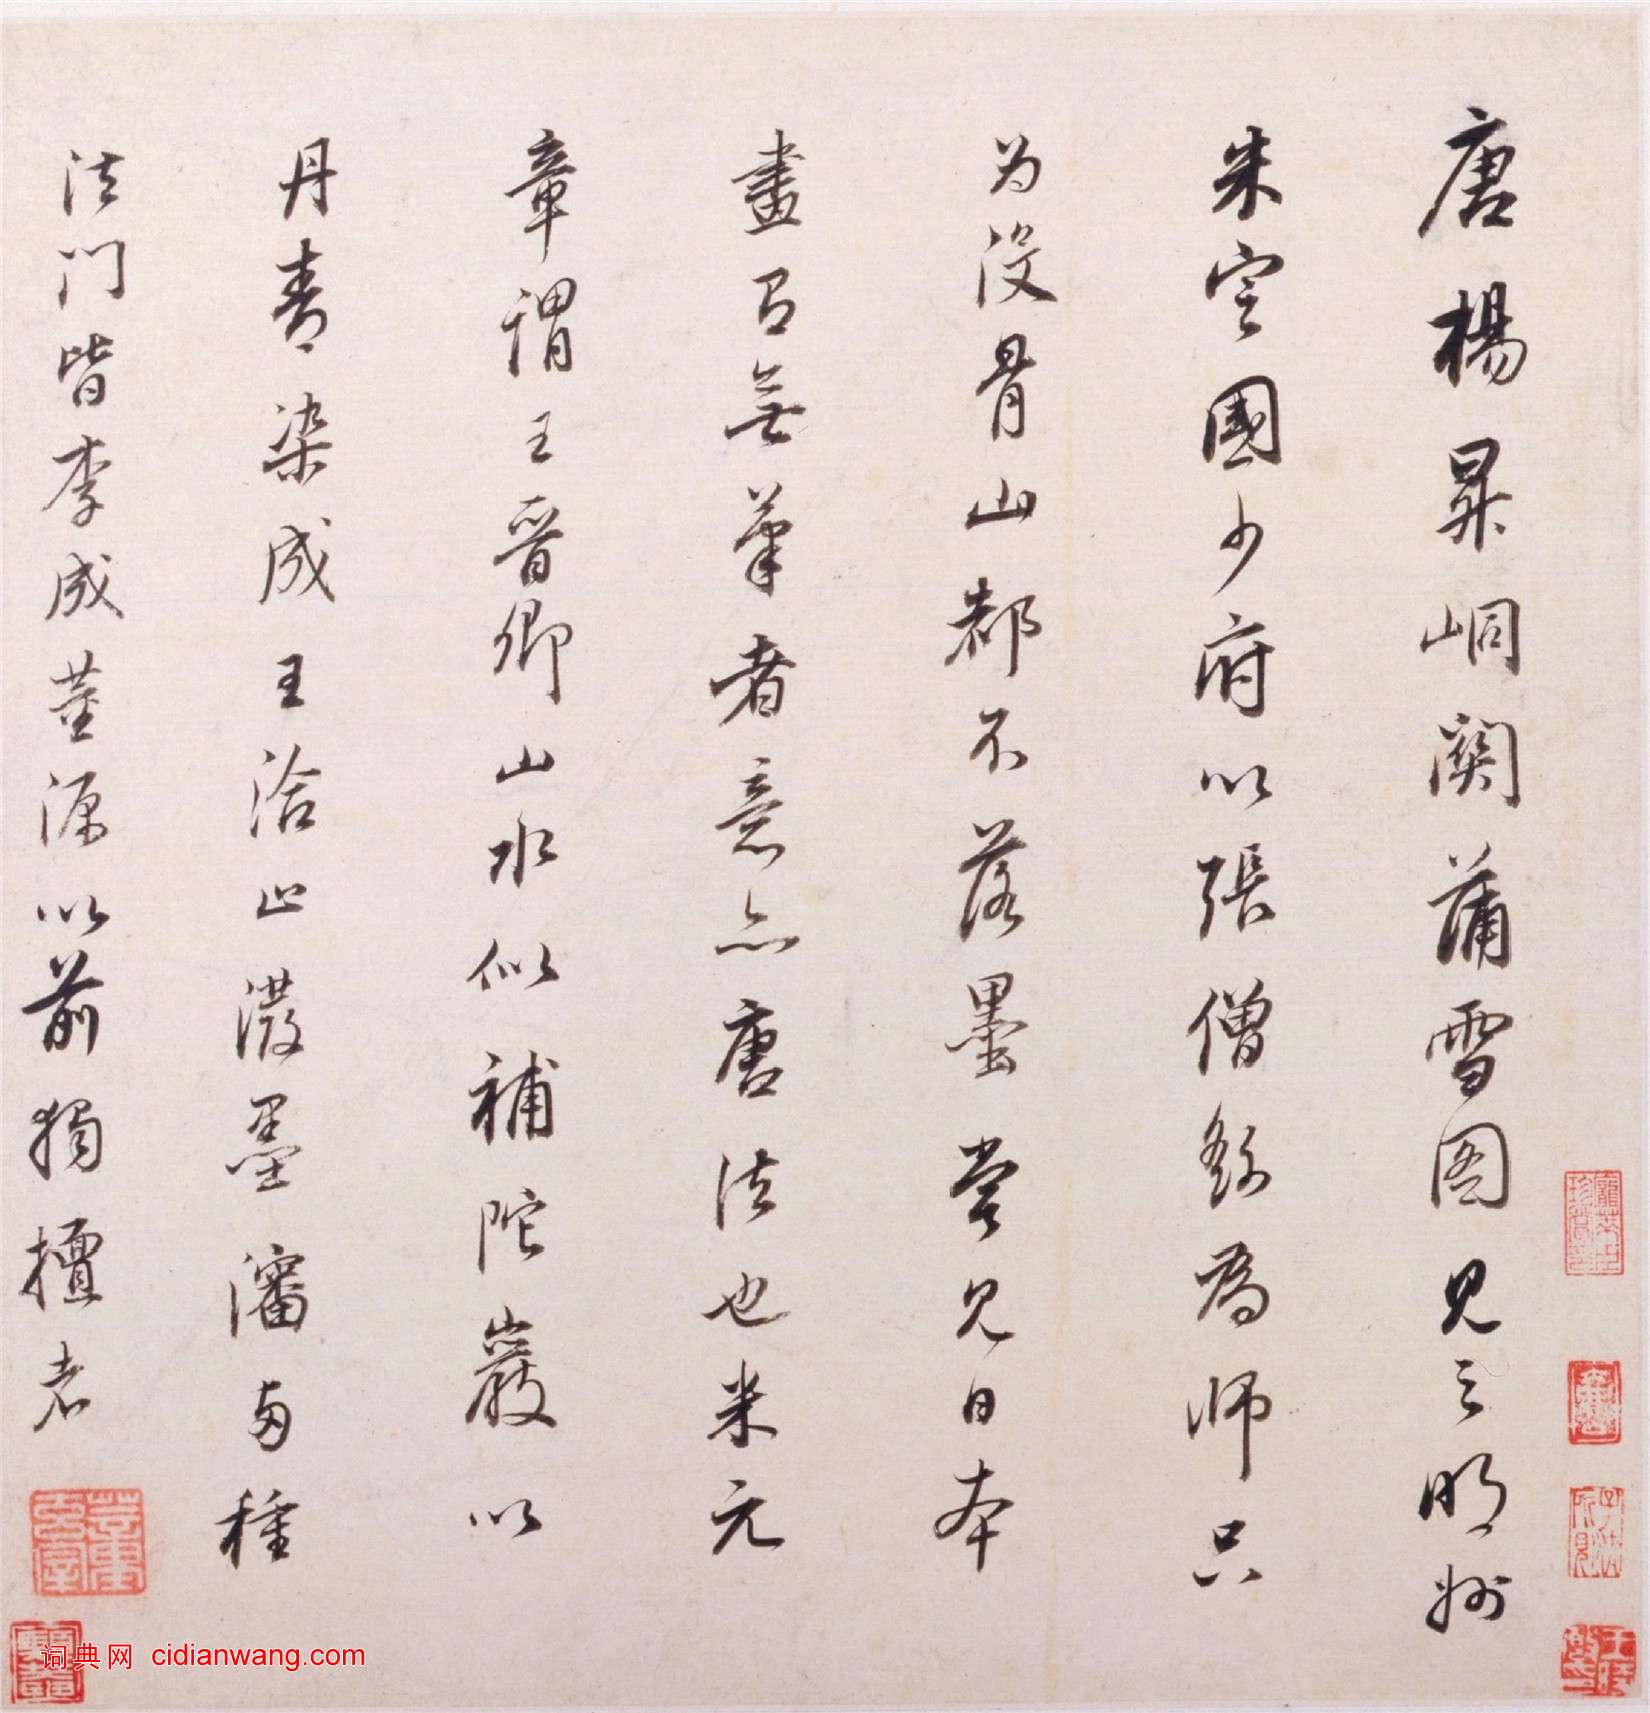 唐楊昇峒關蒲雪图見之明州
朱定國少府以張僧繇為师只
为没骨山都不落墨嘗見日本
畫有無筆者意亦唐法也米元
章謂王晋卿山水似補陀巖以
丹青染成王洽止潑墨瀋两種
法门皆李成董源以前獨擅者
词典网 cidianwang.com